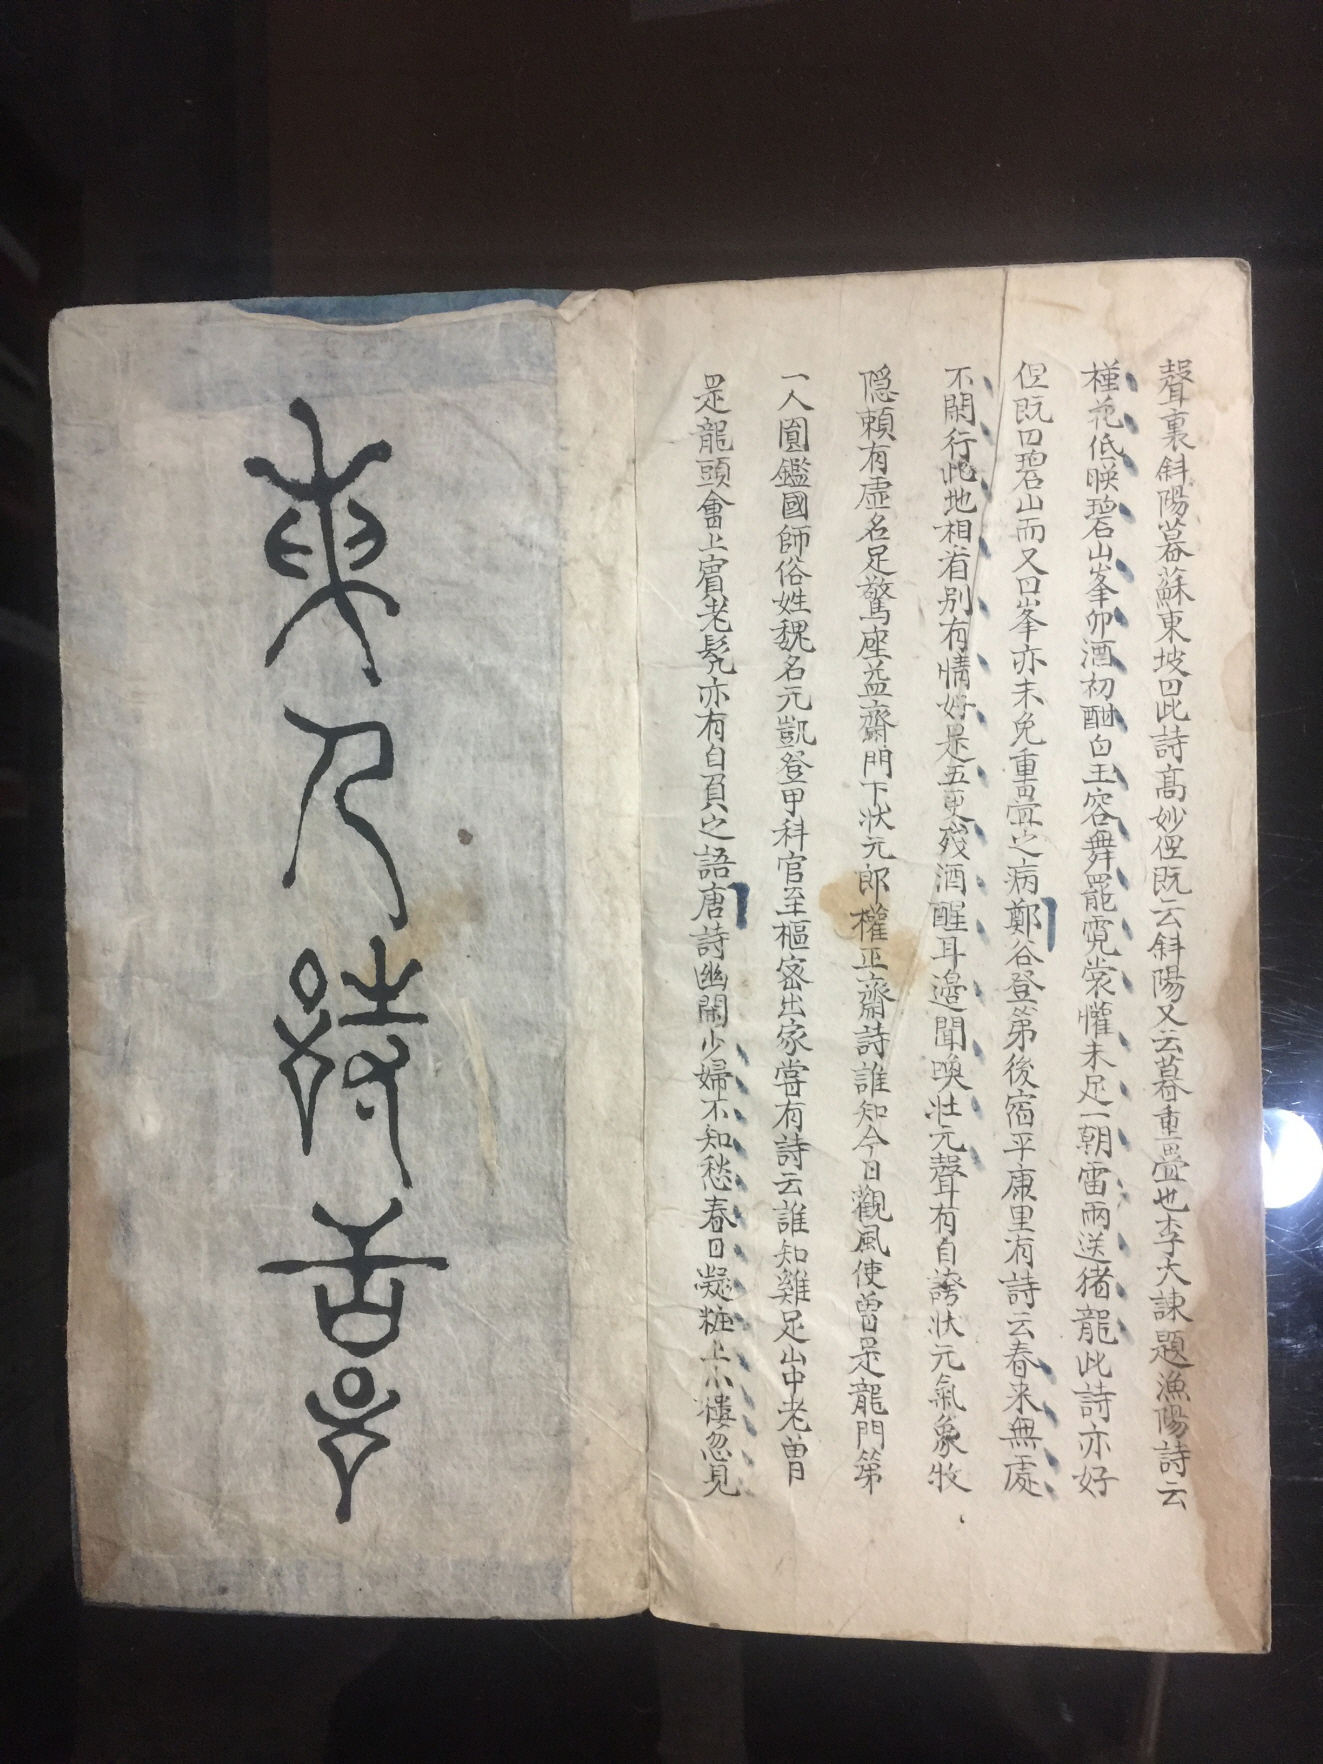 聲裏斜陽暮蘇東坡曰此詩高妙但既云斜陽又云暮重疊也李大諫題漁陽詩云
槿花低映碧山峯卯酒初酣白玉容舞罷霓裳懽未足一朝雷雨送猪龍此詩亦好
但既曰碧山而又曰峯亦未免重疊之病鄭谷登第後宿平康里有詩云春来無處
不閑行此地相看別有情好是五更殘酒醒耳邊聞喚壯元聲有自誇狀元氣象牧
隠頼有虛名足驚座益齋門下状元郎權正齋詩誰知今日觀風使曽是龍門第
一人圎鑑國師俗姓魏名元凱登甲科官至樞密出家嘗有詩云誰知雞足山中老曽
是龍頭會上賔老髡亦有自負之語唐詩幽閑少婦不知愁春日凝粧上小樓忽見